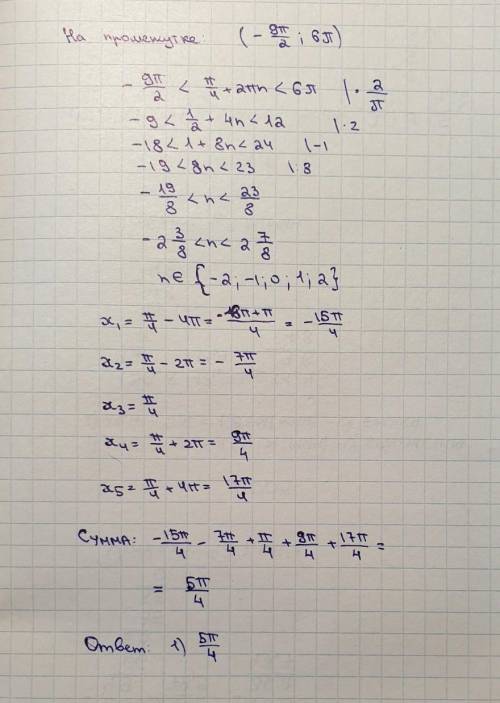 На промежутке: (-9π/2; 6π)
-9π/2 < π/4 + 2πn < 6π |· 2/π
-9 < 1/2 + 4n < 12 |·2
-18 < 1 + 8n < 24 |-1
-19 < 8n < 23 |:8
-19/8 < n < 23/8
-2 3/8 < n < 2 7/8
n∈ {-2; -1; 0; 1; 2}
x₁ = π/4 - 4π = -16π+π/4 = -15π/4
x₂ = π/4 - 2π = -7π/4
x₃ = π/4
x₄ = π/4 + 2π = 9π/4
x₅ = π/4 + 4π = 17π/4
Сумма: -15π/4 - 7π/4 + π/4 + 9π/4 + 17π/4 =
= 5π/4
Ответ: 1) 5π/4